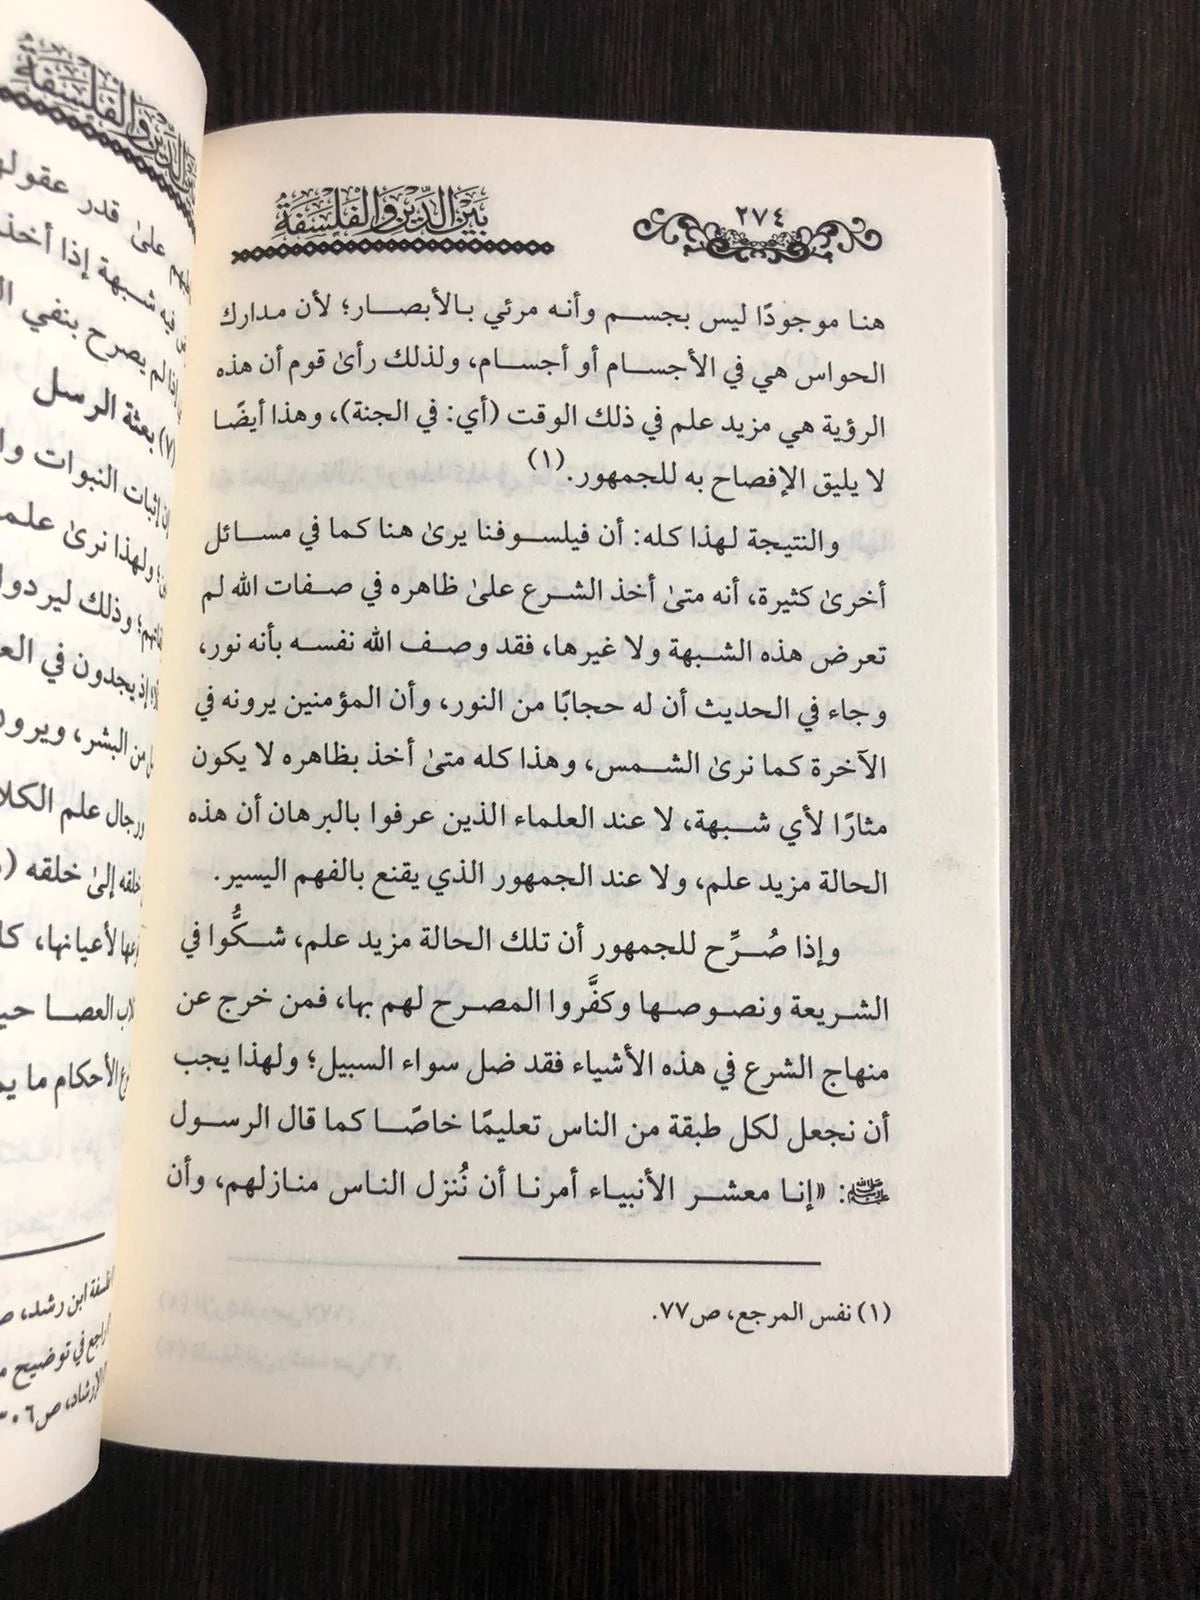 ٢٧٤
بين الدين والفلسفة
هنا موجودًا ليس بجسم وأنه مرئي بالأبصار؛ لأن مدارك
الحواس هي في الأجسام أو أجسام، ولذلك رأىٰ قوم أن هذه
الرؤية هي مزيد علم في ذلك الوقت (أي: في الجنة)، وهذا أيضًا
لا يليق الإفصاح به للجمهور.(١)
والنتيجة لهذا كله: أن فيلسوفنا يرىٰ هنا كما في مسائل
أخرىٰ كثيرة، أنه متىٰ أخذ الشرع علىٰ ظاهره في صفات الله لم
تعرض هذه الشبهة ولا غيرها، فقد وصف الله نفسه بأنه نور،
وجاء في الحديث أن له حجابًا من النور، وأن المؤمنين يرونه في
الآخرة كما نرىٰ الشمس، وهذا كله متىٰ أخذ بظاهره لا يكون
مثارًا لأي شبهة، لا عند العلماء الذين عرفوا بالبرهان أن هذه
الحالة مزيد علم، ولا عند الجمهور الذي يقنع بالفهم اليسير.
وإذا صُرِّح للجمهور أن تلك الحالة مزيد علم، شكُّوا في
الشريعة ونصوصها وكفَّروا المصرح لهم بها، فمن خرج عن
منهاج الشرع في هذه الأشياء فقد ضل سواء السبيل؛ ولهذا يجب
أن نجعل لكل طبقة من الناس تعليمًا خاصًا كما قال الرسول
ﷺ: «إنا معشر الأنبياء أمرنا أن نُنزل الناس منازلهم، وأن
(١) نفس المرجع، ص٧٧.
الدين والفلسفة
علىٰ قدر عقولهم
فيه شبهة إذا أخذ
إذا لم يصرح بنفي
(٧) بعثة الرسل
إثبات النبوات
ولهذا نرىٰ
وذلك ليردوا
إذ يجدون في
من البشر، ويرون
ورجال علم الكلا
خلقه إلىٰ خلقه
لأعيانها،
العصا
الأحكام ما
ابن رشد،
في توضيح